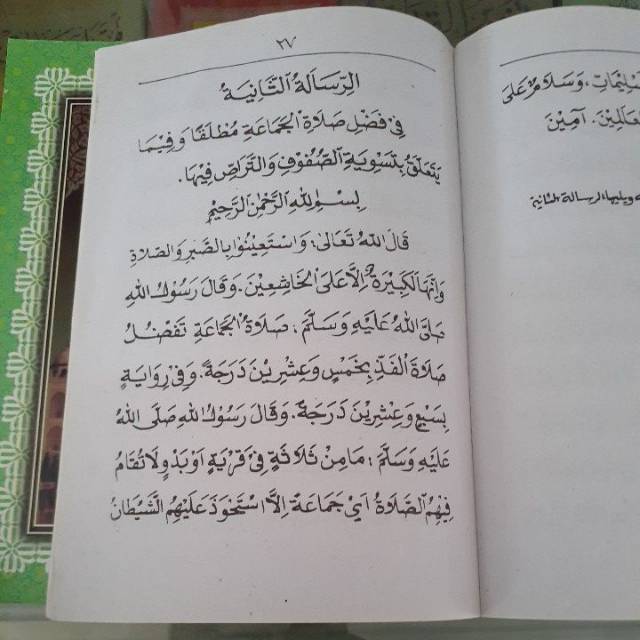 ٢٧
الرِّسَالَةُ الثَّانِيَةُ
فِي فَضْلِ صَلَاةِ الْجَمَاعَةِ مُطْلَقًا وَفِيْمَا
يَتَعَلَّقُ بِتَسْوِيَةِ الصُّفُوْفِ وَالتَّرَاصِّ فِيْهَا.
بِسْمِ اللهِ الرَّحْمٰنِ الرَّحِيْمِ
قَالَ اللهُ تَعَالَى: وَاسْتَعِيْنُوْا بِالصَّبْرِ وَالصَّلَاةِ
وَإِنَّهَا لَكَبِيْرَةٌ إِلَّا عَلَى الْخَاشِعِيْنَ. وَقَالَ رَسُوْلُ اللهِ
صَلَّى اللهُ عَلَيْهِ وَسَلَّمَ: صَلَاةُ الْجَمَاعَةِ تَفْضُلُ
صَلَاةَ الْفَذِّ بِخَمْسٍ وَعِشْرِيْنَ دَرَجَةً. وَفِي رِوَايَةٍ
بِسَبْعٍ وَعِشْرِيْنَ دَرَجَةً. وَقَالَ رَسُوْلُ اللهِ صَلَّى اللهُ
عَلَيْهِ وَسَلَّمَ: مَا مِنْ ثَلَاثَةٍ فِي قَرْيَةٍ اَوْ بَدْوٍ لَا تُقَامُ
فِيْهِمُ الصَّلَاةُ اَيْ جَمَاعَةً اِلَّا اسْتَحْوَذَ عَلَيْهِمُ الشَّيْطَانُ
وَسَلَامٌ عَلَى
آمِيْنَ
ويليها الرسالة الثانية